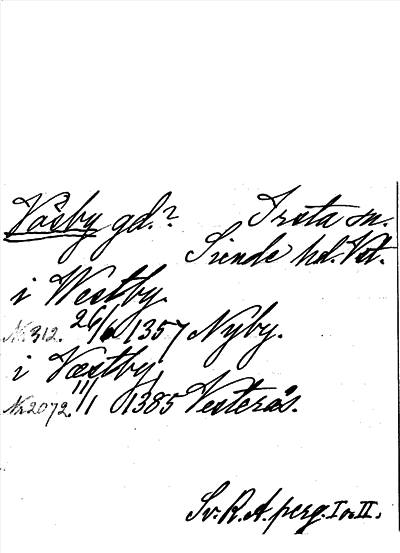 Väsby gd.? Irsta sn.
Siende hd. Vst.
i Westby.
Nr. 312. 26/6 1357 Nyby.
i Væstby
Nr. 2072. 11/1 1385 Vesterås.
Sv. R. A. perg. I o. II.